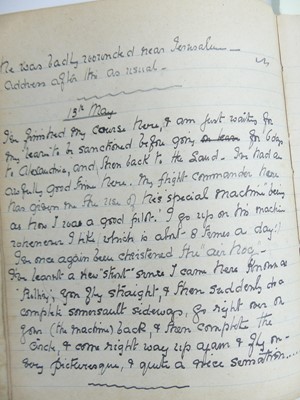 He was badly wounded near Jerusalem —
Address after this as usual —
13th May
I've finished my course here, & am just waiting for
my leave to be sanctioned before going on leave for 6 days
to Alexandria, and then back to the Sand. I've had an
awfully good time here. My flight commander here
has given me the use of his "special machine" being
as how I was a good pilot.' I go up on his machine
whenever I like, which is abt 8 times a day!!
I've once again been christened the "air Hog" —
I've learnt a new "stunt" since I came here known as
You fly straight, & then suddenly do a
complete somersault sideways, go right over on
your (the machine) back, & then complete the
circle, & come right way up again & fly on —
Very picturesque, & quite a nice sensation....